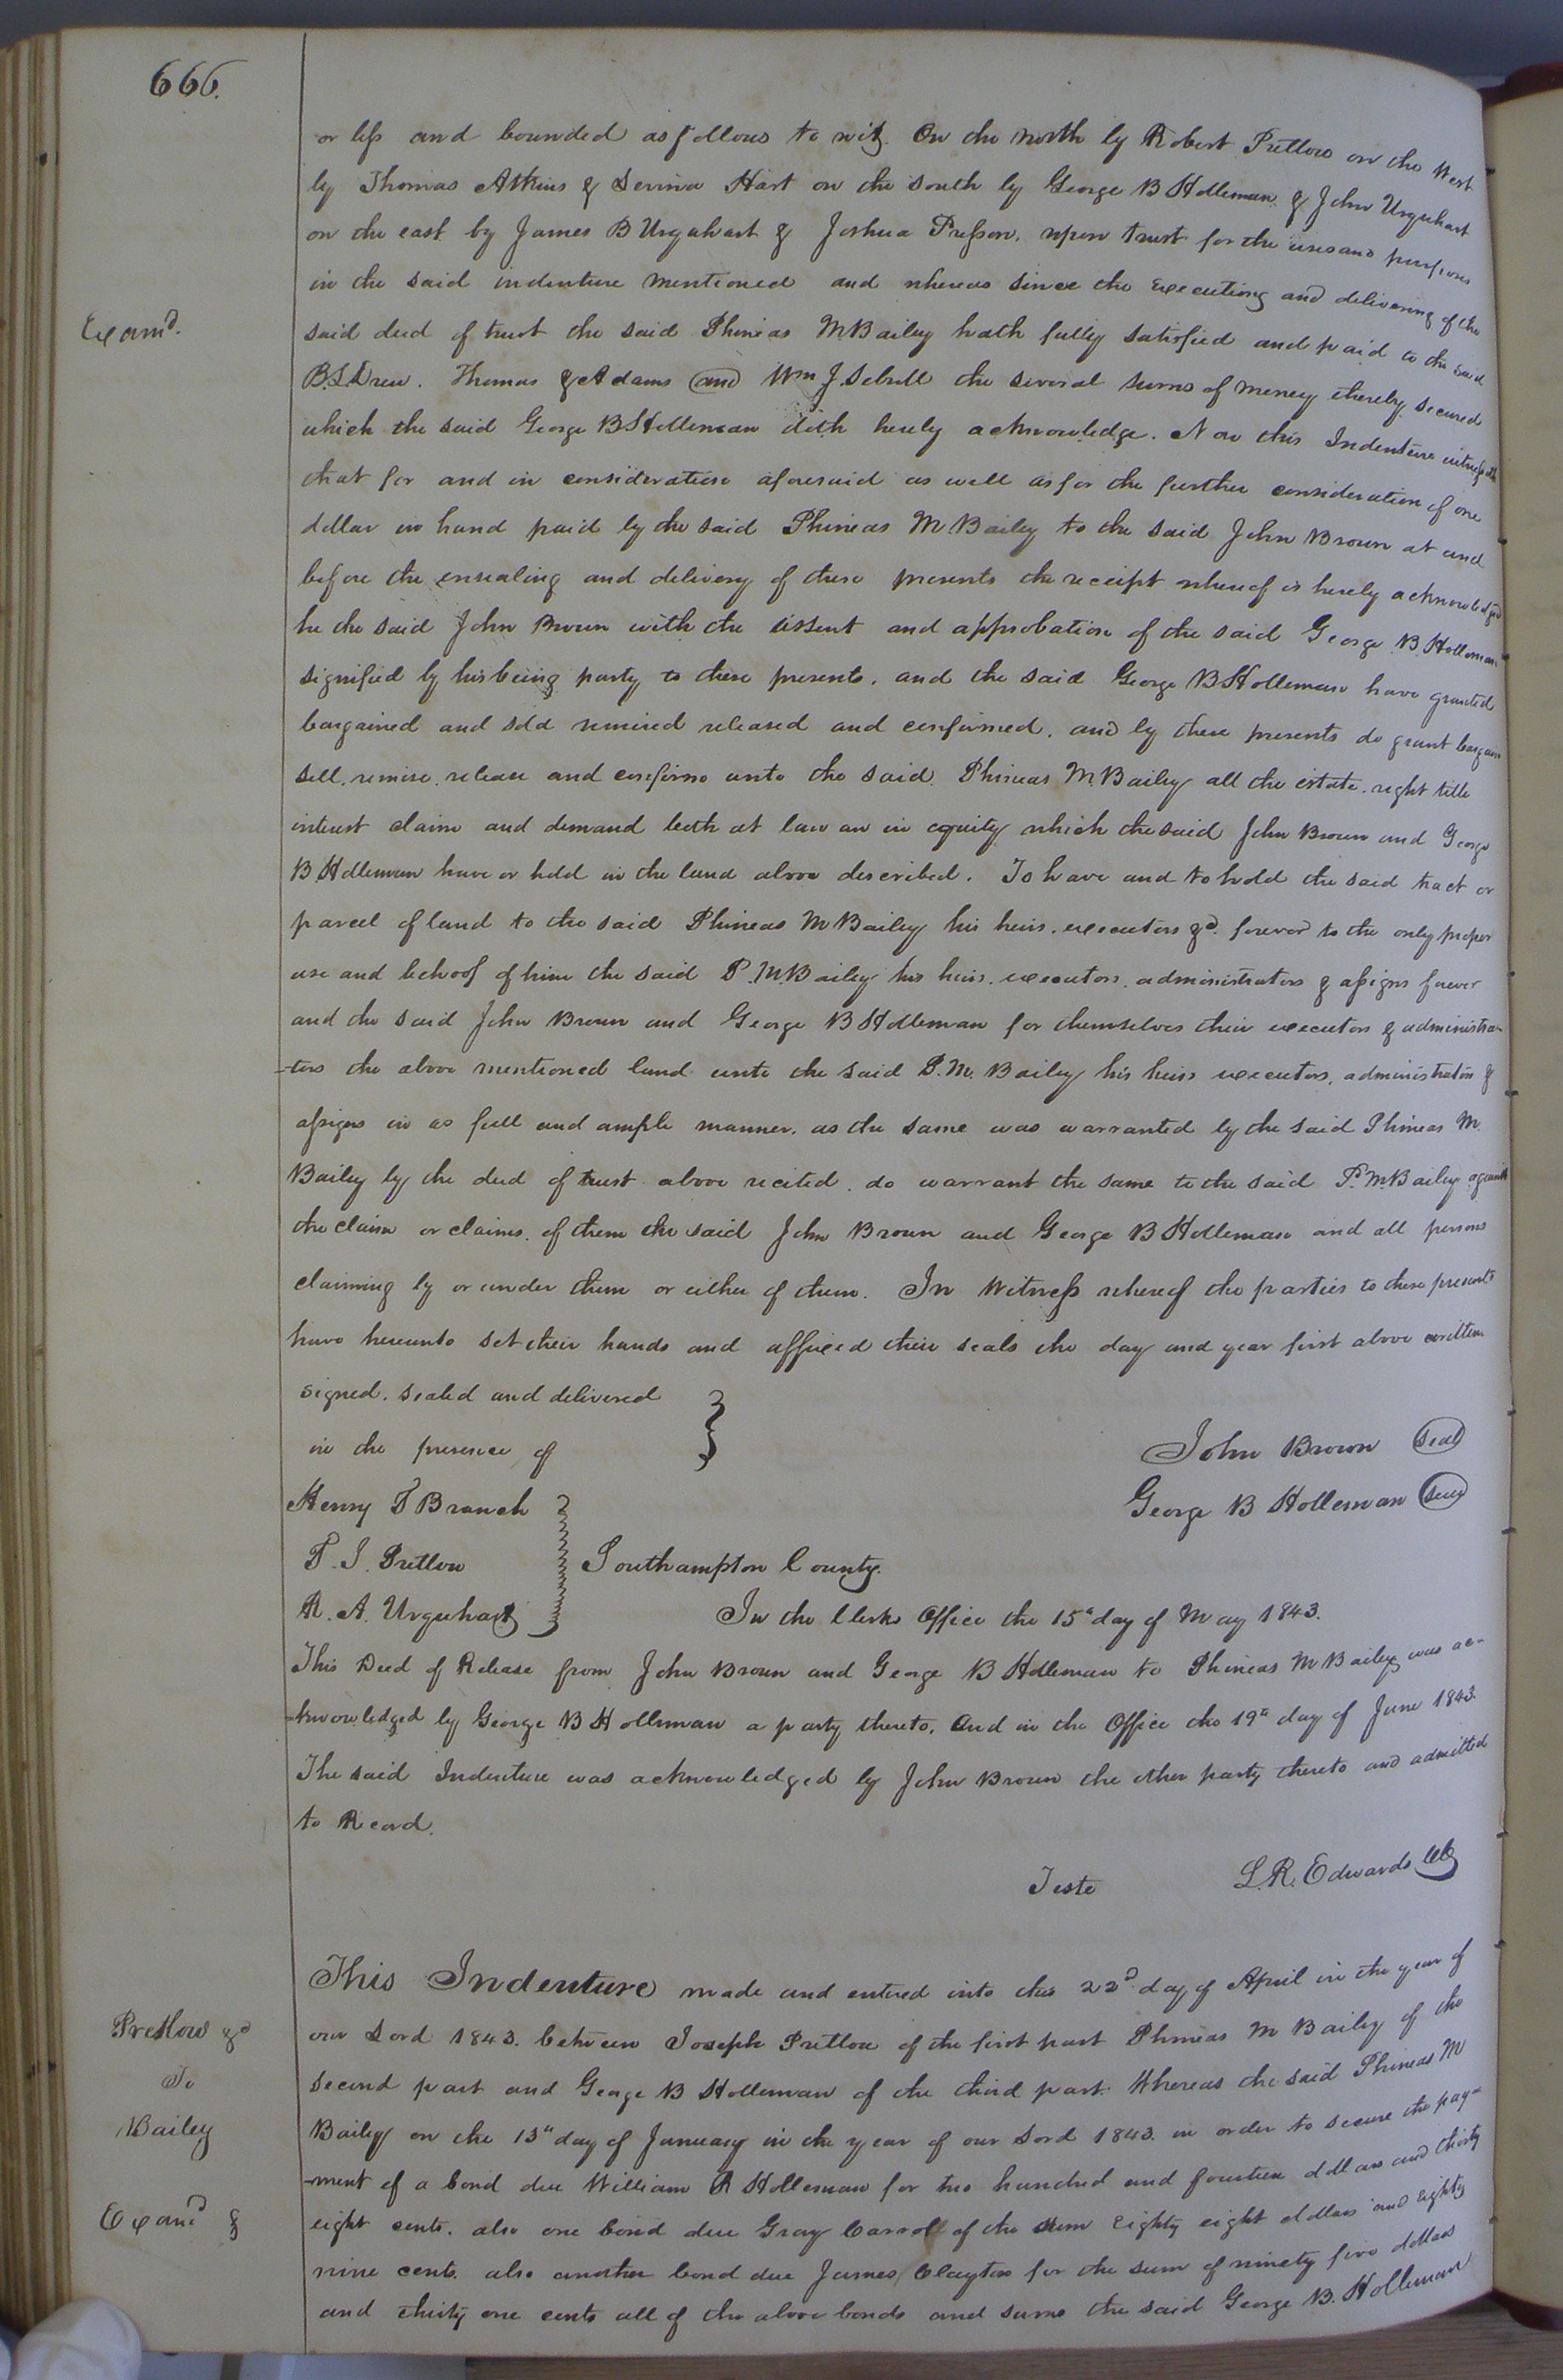 666.
or less and bounded as follows to wit. On the north by Robert Pretlow on the West
by Thomas Atkins & Serrina Hart on the South by George B Holleman & John Urquhart
on the east by James B Urquhart & Joshua Presson. upon trust for the uses and purposes
in the said indenture mentioned and whereas since the executing and delivering of the
Examd.
said deed of trust the said Phineas M Bailey hath fully satisfied and paid to the said
B.S. Drew. Thomas & Adams and Wm J. Sebrell the several sums of money thereby secured
which the said George B Holleman doth hereby acknowledge. Now this Indenture witnesseth
that for and in consideration aforesaid as well as for the further consideration of one
dollar in hand paid by the said Phineas M. Bailey to the said John Brown at and
before the ensealing and delivery of these presents the receipt whereof is hereby acknowledged
he the said John Brown with the assent and approbation of the said George B. Holleman
signified by his being party to these presents. and the said George B Holleman have granted
bargained and sold remised released and confirmed. and by these presents do grant bargain
sell. remise. release and confirm unto the said Phineas M. Bailey all the estate. right title
interest claim and demand both at law an in equity which the said John Brown and George
B. Holleman have or hold in the land above described. To have and to hold the said tract or
parcel of land to the said Phineas M Bailey his heirs. executors &c. forever to the only proper
use and behoof of him the said P. M. Bailey his heirs. executors. administrators & assigns forever
and the said John Brown and George B Holleman for themselves their executors & administra-
-tors the above mentioned land unto the said P. M. Bailey his heirs executors, administrators &
assigns in as full and ample manner. as the same was warranted by the said Phineas M.
Bailey by the deed of trust above recited. do warrant the same to the said P. M. Bailey against
the claim or claims. of them the said John Brown and George B Holleman and all persons
claiming by or under them or either of them. In Witness whereof the parties to these presents
have hereunto set their hands and affixed their seals the day and year first above written
signed. sealed and delivered
in the presence of
John Brown Seal
Henry T Branch
George B Holleman Seal
T. J. Pretlow
Southampton County.
R. A. Urquhart
In the Clerks Office the 15" day of May 1843.
This Deed of Release from John Brown and George B Holleman to Phineas M Bailey was ac-
-knowledged by George B Holleman a party thereto. And in the Office the 19" day of June 1843.
The said Indenture was acknowledged by John Brown the other party thereto and admitted
to Record.
Teste L. R. Edwards Clk
This Indenture made and entered into this 22d day of April in the year of
Pretlow &c
our Lord 1843. between Joseph Pretlow of the first part Phineas M Bailey of the
To
second part and George B Holleman of the third part. Whereas the said Phineas M
Bailey
Bailey on the 13" day of January in the year of our Lord 1843. in order to secure the pay-
-ment of a bond due William R Holleman for two hundred and fourteen dollars and thirty
Examd &
eight cents. also one bond due Gray Carroll of the sum Eighty eight dollars and eighty
nine cents. also another bond due James Clayton for the sum of ninety five dollars
and thirty one cents all of the above bonds and sums the said George B. Holleman